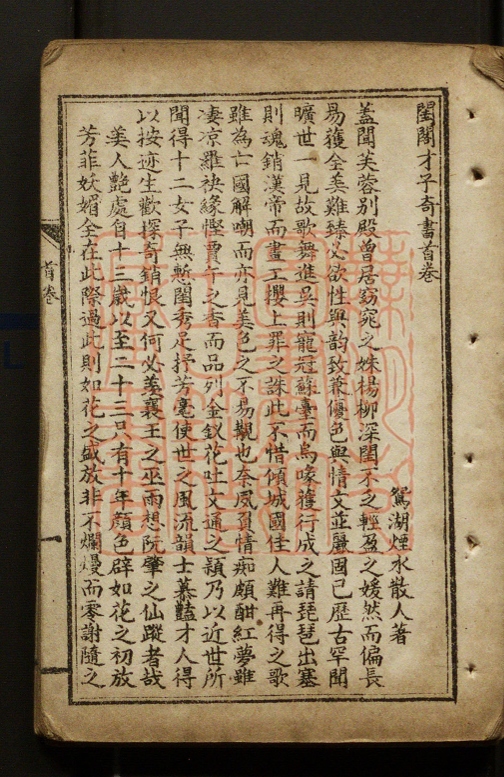 閨閣才子奇書首卷
鴛湖煙水散人著
蓋聞芙蓉別殿曾居窈窕之姝楊柳深閨不乏輕盈之媛然而偏長
易獲全美難臻必欲性與韵致兼優色與情文並麗國已歷古罕聞
曠世一見故歌舞進吳則寵冠蘇臺而烏喙獲行成之請琵琶出塞
則魂銷漢帝而畫工攖上罪之誅此不惜傾城國佳人難再得之歌
雖為亡國解嘲而亦見美色之不易覯也奈夙負情痴頗酣紅夢雖
凄凉羅袂緣慳賈午之香而品列金釵花吐文通之穎乃以近世所
聞得十二女子無慙閨秀足抒芳毫使世之風流韻士慕豔才人得
以按迹生歡探奇銷恨又何必羡襄王之巫雨想阮肇之仙蹤者哉
美人艷處自十三歲以至二十三只有十年顏色辟如花之初放
芳菲妖媚全在此際過此則如花之盛放非不爛熳而零謝隨之
首卷